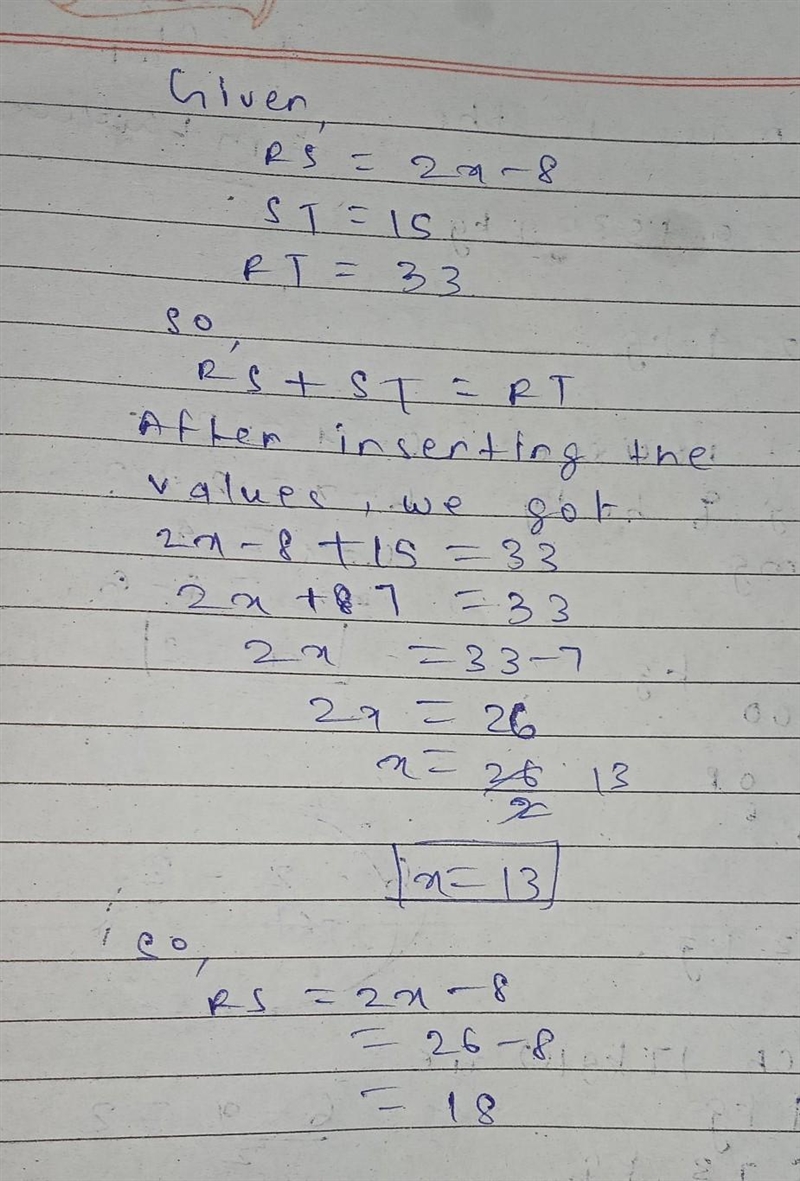 Given,
RS = 2x - 8
ST = 15
RT = 33
so,
RS + ST = RT
After inserting the
values, we got.
2x - 8 + 15 = 33
2x + 7 = 33
2x = 33 - 7
2x = 26
x = 26/2 13
x = 13
so,
RS = 2x - 8
= 26 - 8
= 18